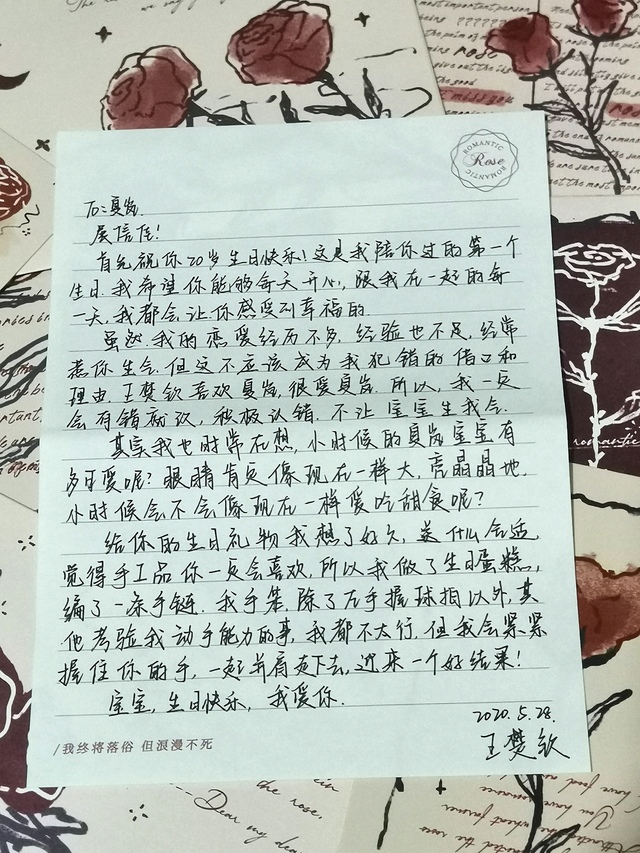 ROMANTIC
Rose
ROMANTIC
To：夏岚
展信佳！
首先祝你20岁生日快乐！这是我陪你过的第一个
生日.我希望你能够每天开心，跟我在一起的每
一天，我都会让你感受到幸福的.
虽说我的恋爱经历不多，经验也不足，经常
惹你生气.但这不应该成为我犯错的借口和
理由.王楚钦喜欢夏岚，很爱夏岚.所以，我一定
会有错就改，积极认错.不让宝宝生我气.
其实我也时常在想，小时候的夏岚宝宝有
多可爱呢？眼睛肯定像现在一样大，亮晶晶地.
小时候会不会像现在一样爱吃甜食呢？
给你的生日礼物我想了好久，送什么合适
觉得手工品你一定会喜欢，所以我做了生日蛋糕，
编了一条手链.我手笨，除了左手握球拍以外，其
他考验我动手能力的事，我都不太行.但我会紧紧
握住你的手，一起并肩走下去，迎来一个好结果！
宝宝，生日快乐，我爱你.
2020.5.28.
王楚钦
/我终将落俗 但浪漫不死
Dear my dear
the rose.
romantic